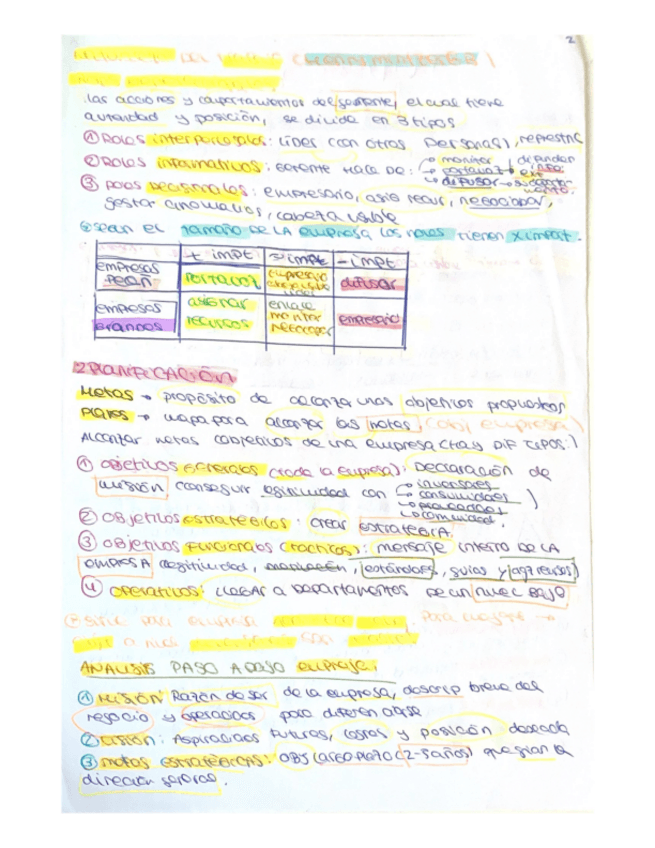 2
Las acciones y comportamientos del gerente, el cual tiene
autoridad y posición, se divide en 3 tipos
① Roles interpersonales: líder con otros personas,
② Roles informativos: gerente hace de: → monitor
→ portavoz → ext
→ difusor →
③ roles decisionales: empresario, asig recur, negociador,
gestor anomalias, cabeza visible
según el tamaño DE LA empresa los roles tienen X import.
+ impt ≈ impt - impt
empresas PEQÑ portavoz empresario difusor
empresas grandes asignar recursos enlace monitor negociador empresario
2 PLANIFICACIÓN
Metas → propósito de alcanzar unos objetivos propuestos
Planes → mapa para alcanzar las metas (obj empresa)
Alcanzar metas objetivos de una empresa (hay DIF TIPOS:)
① objetivos generales (toda la empresa): Declaración de
misión conseguir legitimidad con → inversores
→ consumidores
→ proveedores
→ comunidad.
② Objetivos estratégicos: crear estrategia.
③ Objetivos Funcionales (tacticos): mensaje interno DE LA
empresa legitimidad, , estándares, guias y
④ operativos: llegar a Departamentos de un nivel Bajo
ANALISIS PASO A PASO empresa:
① Misión: Razón de ser de la empresa, descrip breve del
negocio y operaciones para diferenciarse
② visión: Aspiraciones futuras, logros y posición deseada
③ metas estratégicas: OBJ largo plazo (2-5 años) que guian la
dirección general.